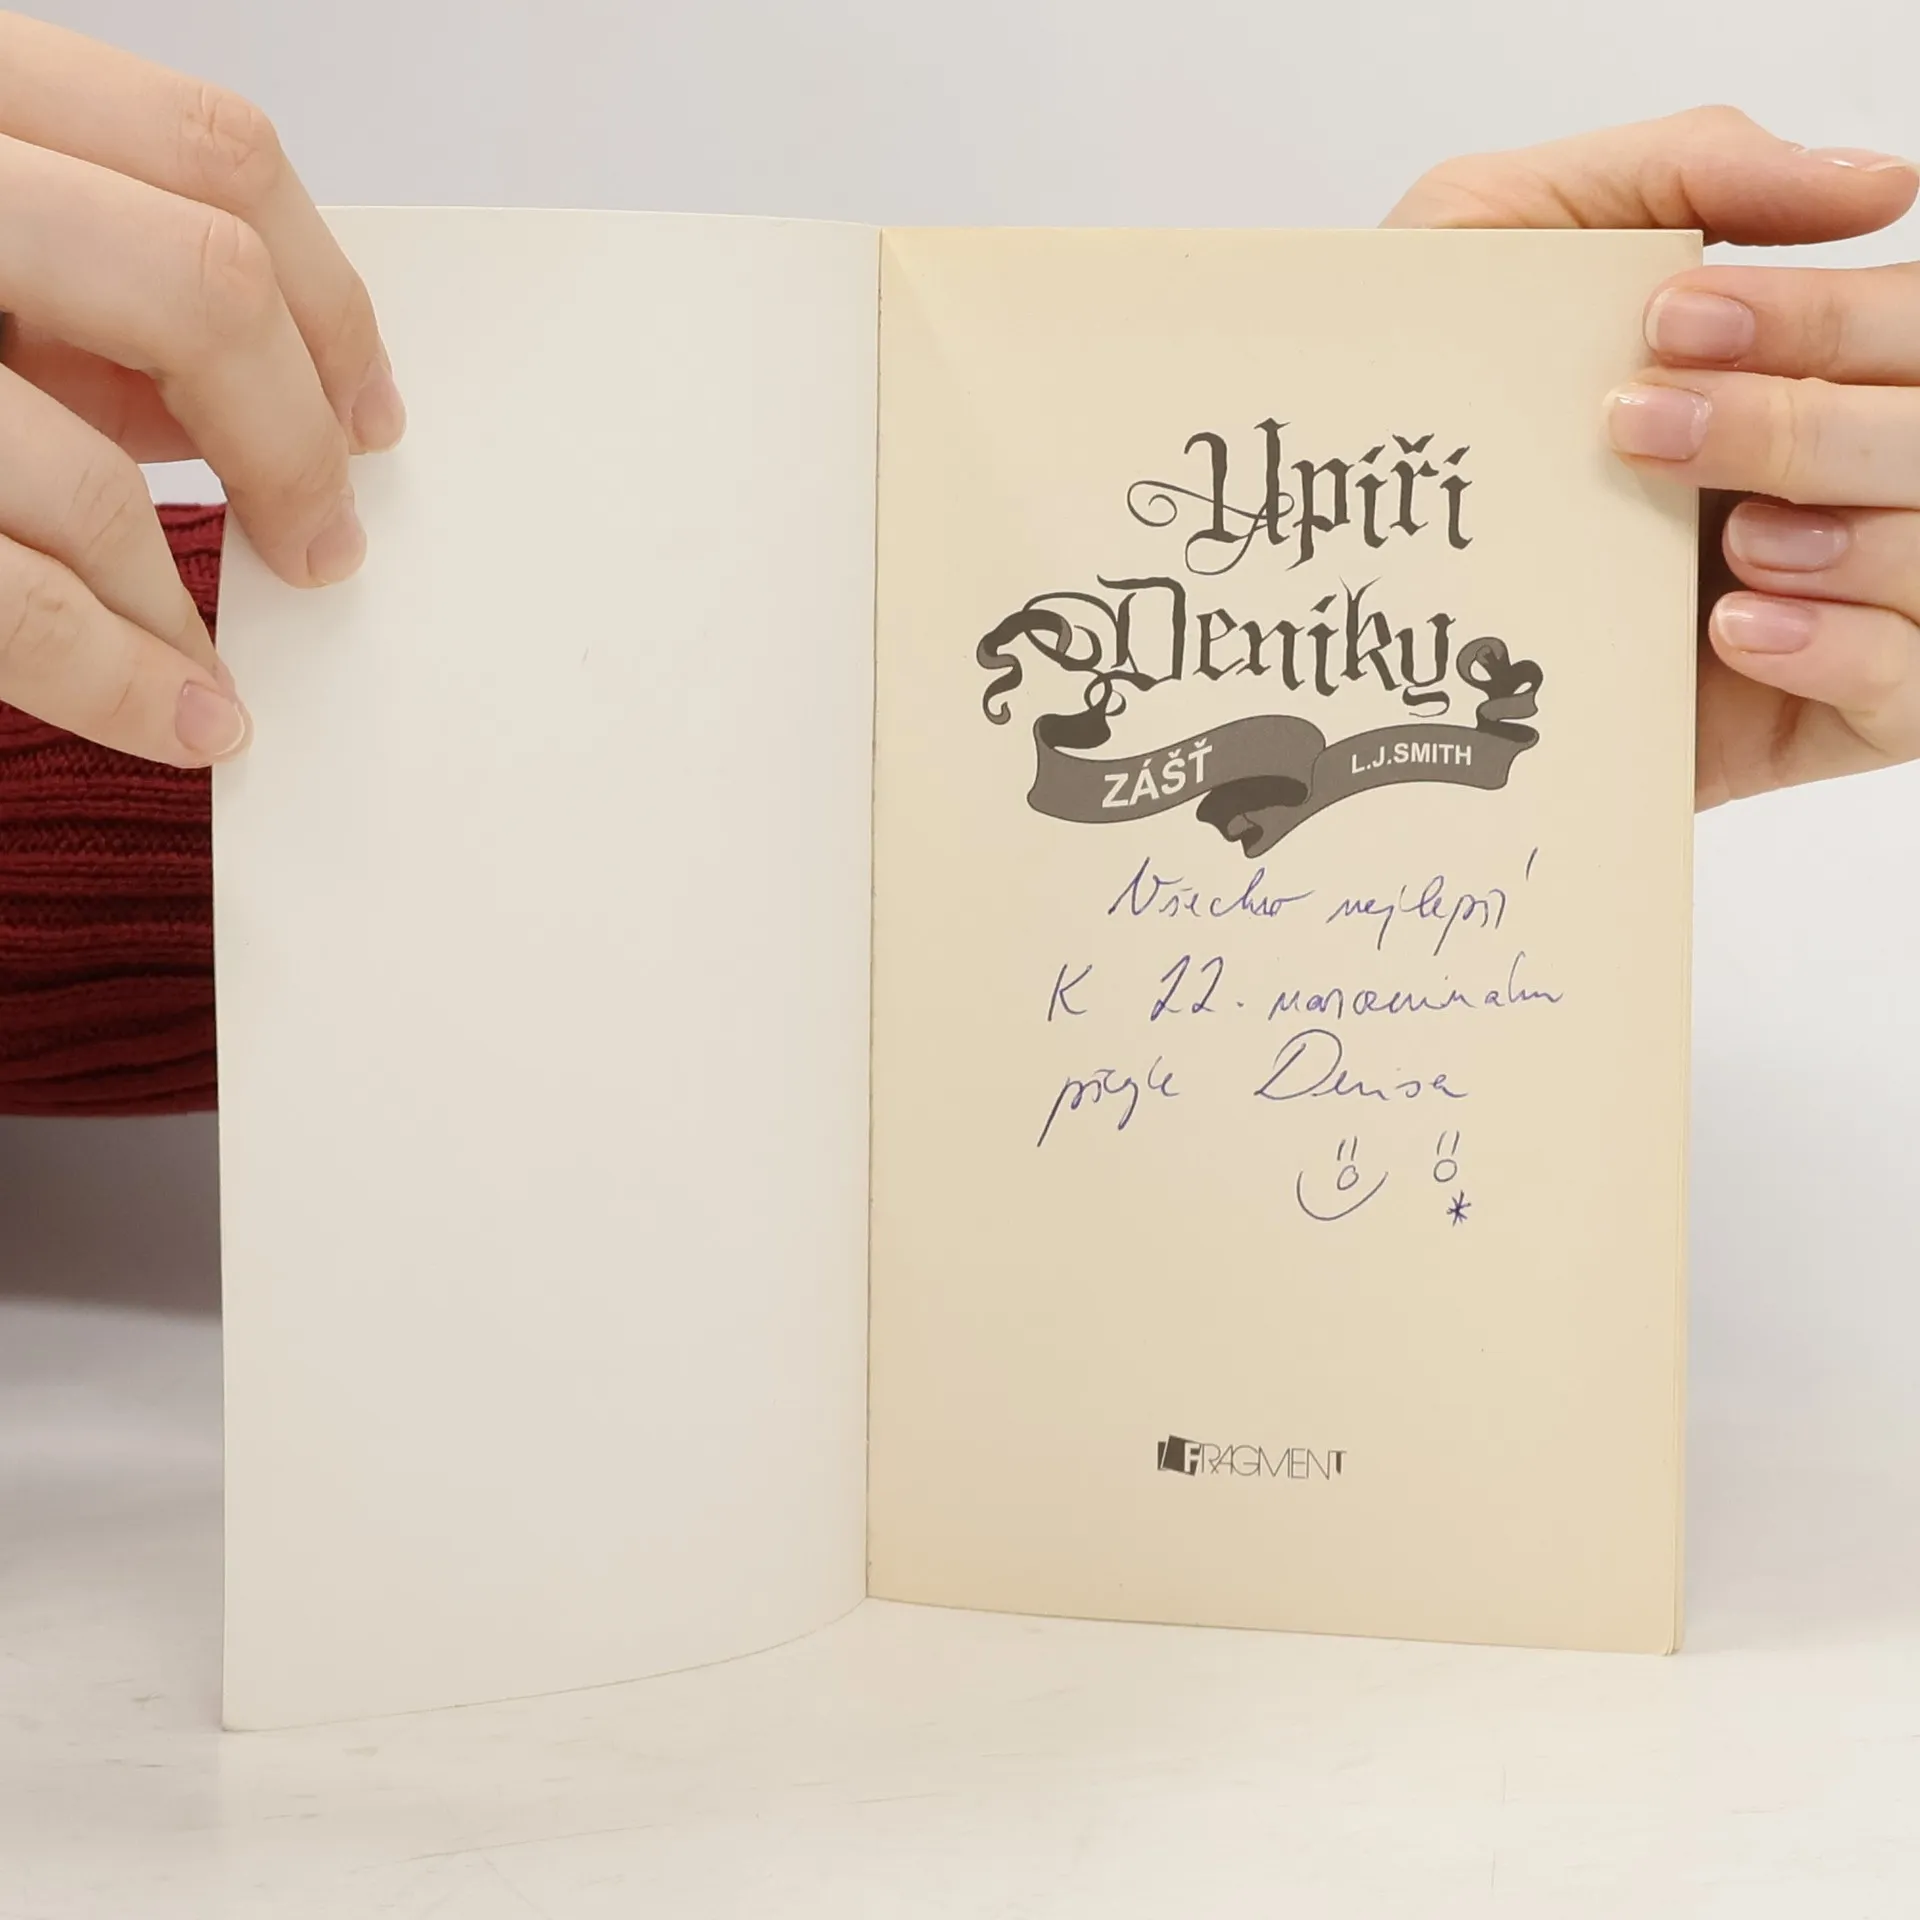 Upíří
Deníky
ZÁŠŤ
L.J.SMITH
Všechno nejlepší
K 22. narozeninám
přeje Denisa
FRAGMENT